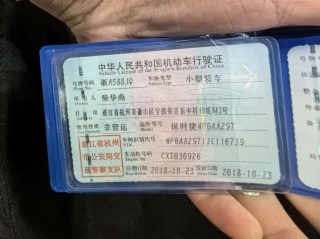 中华人民共和国机动车行驶证
Vehicle License of the People's Republic of China
号牌号码 浙AS88J0 车辆类型 小型轿车
Plate No. Vehicle Type
所有人 柴华燕
Owner
住址 浙江省杭州市萧山区宁围街道
Address
使用性质 非营运 品牌型号 保时捷WP0AA297
Use Character Model
浙江省杭州
市公安局交
通警察支队
车辆识别代号 WP0AA2971JL116739
VIN
发动机号码 CXT030926
Engine No.
注册日期 2018-10-23 发证日期 2018-10-23
Register Date Issue Date